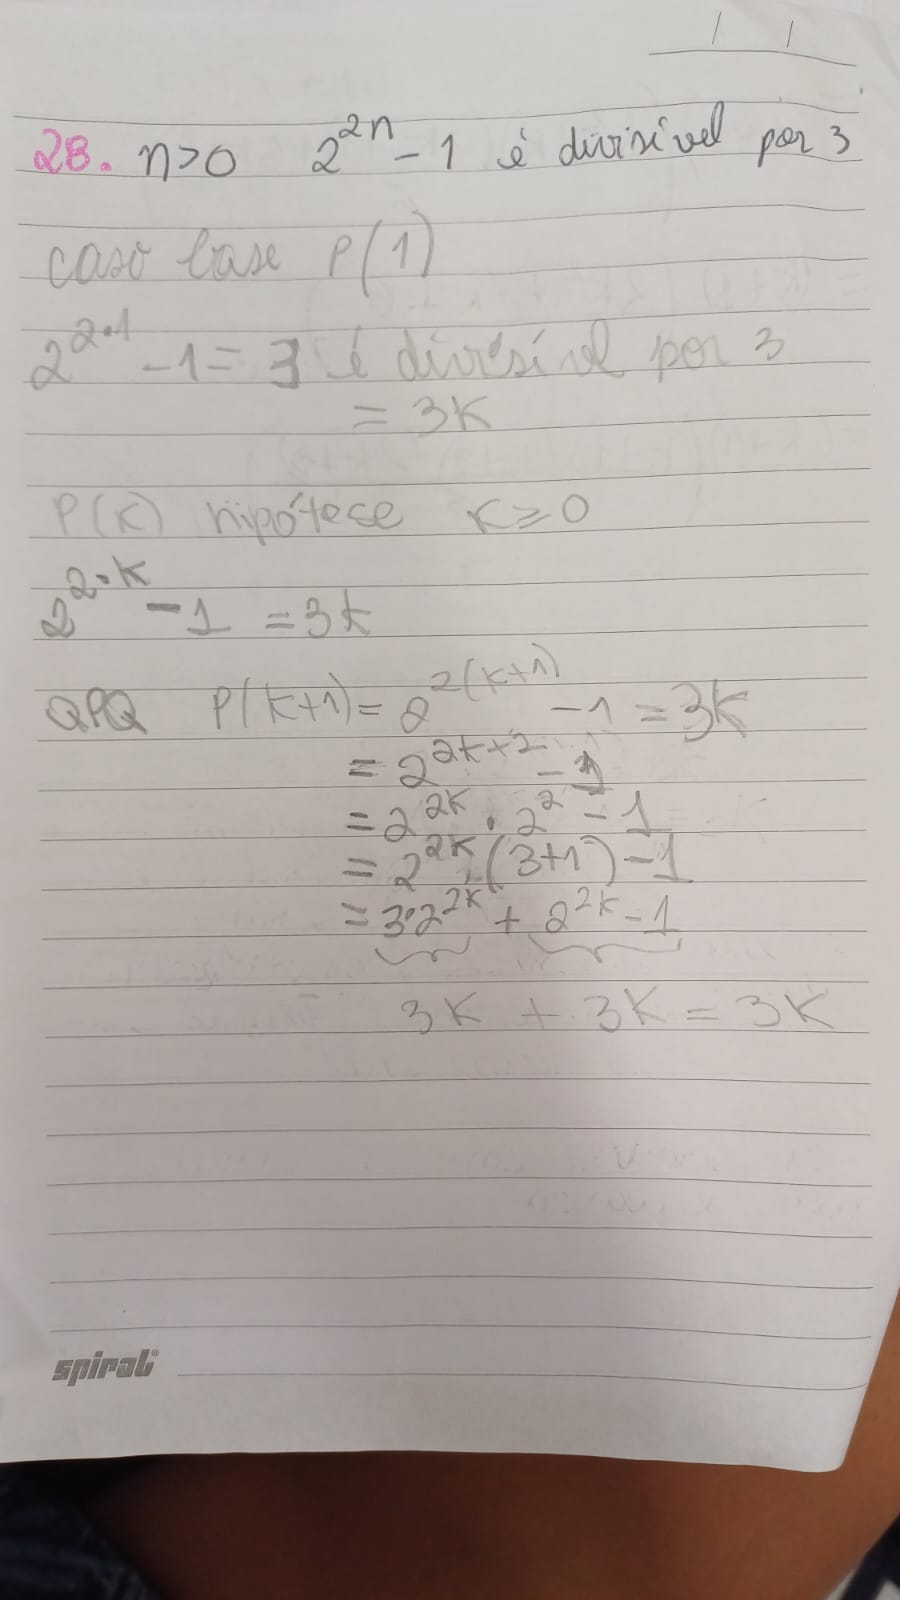 28. n>0 2^{2n} - 1 é divisível por 3
caso base P(1)
2^{2·1} - 1 = 3 é divisível por 3
= 3K
P(K) hipótese K ≥ 0
2^{2·K} - 1 = 3K
QPQ P(K+1) = 2^{2(K+1)} - 1 = 3K
= 2^{2K+2} - 1
= 2^{2K} · 2^2 - 1
= 2^{2K} · (3+1) - 1
= 3·2^{2K} + 2^{2K} - 1
3K + 3K = 3K
spiral®